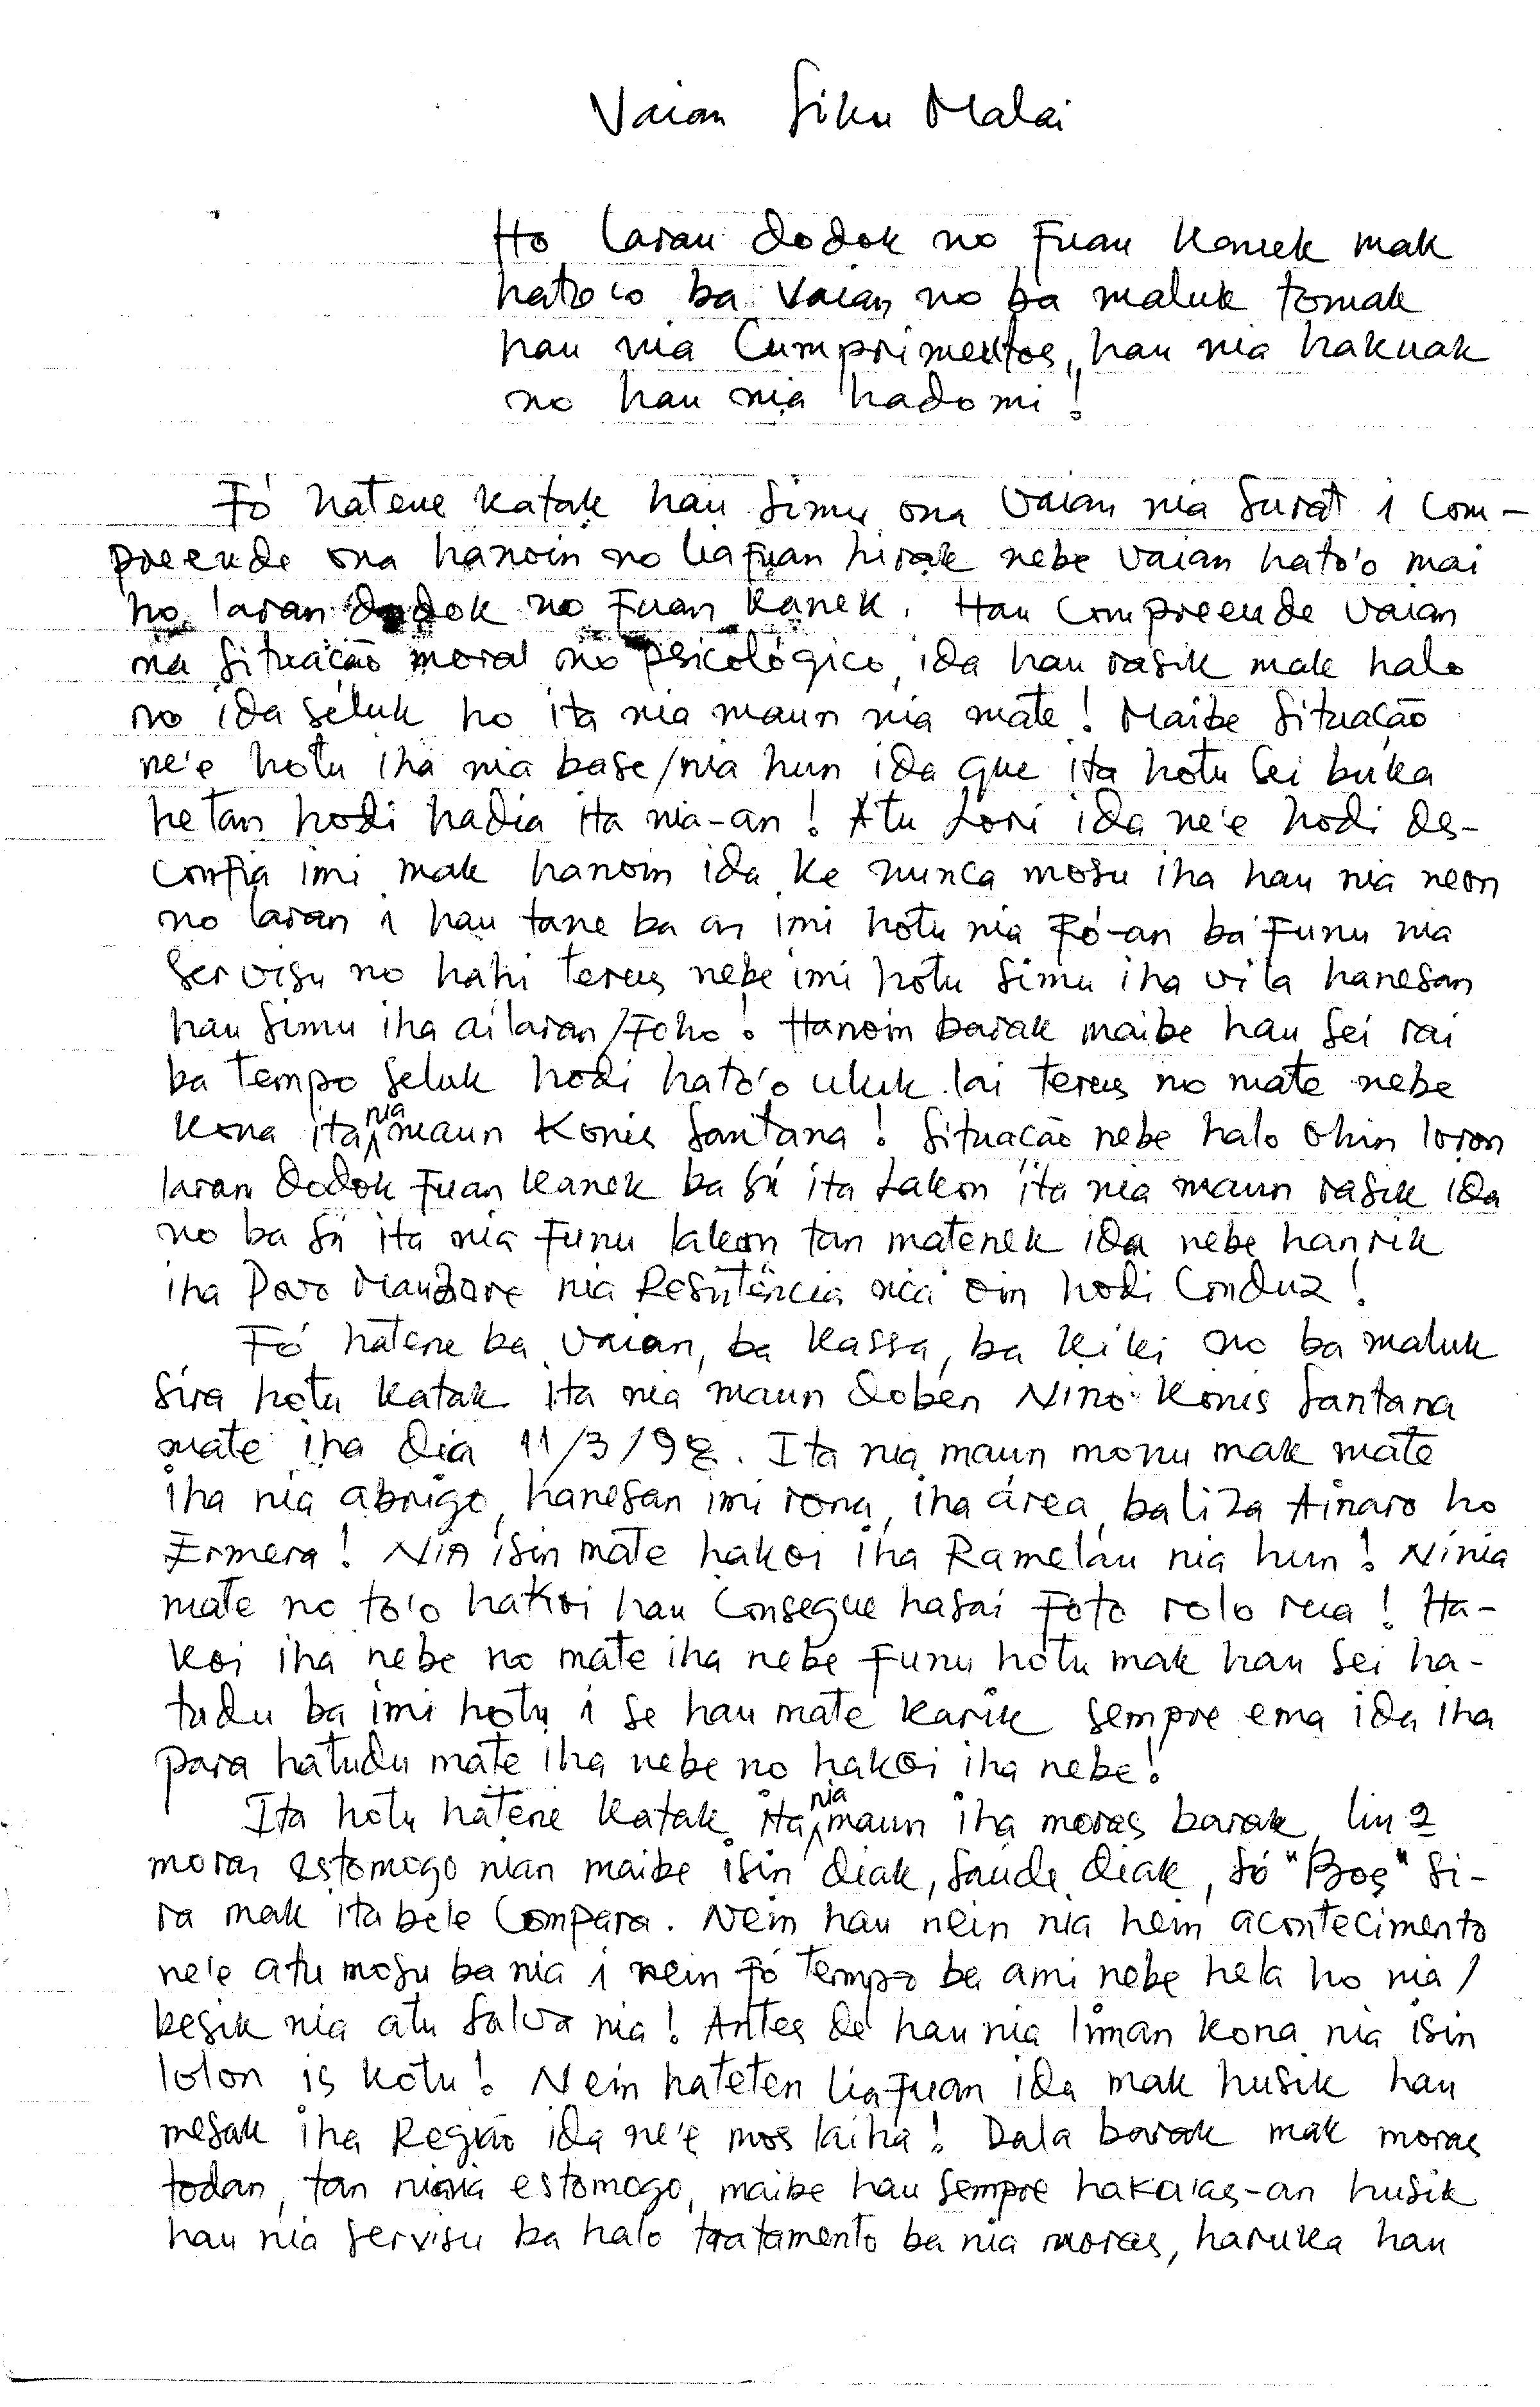 Vaian Siku Malai
Ho laran dodok no Fuan Kanek mak
hato'o ba Vaian no ba maluk tomak
hau nia Cumprimentos, hau nia hakuak
no hau nia hadomi!
Fó hatene katak hau simu ona Vaian nia Surat i com-
preende ona hanoin no liafuan hirak nebe Vaian hato'o mai
ho laran dodok no Fuan Kanek. Hau compreende Vaian
nia situação moral no psicológico, ida hau rasik mak halo
no ida séluk ho ita nia maun nia mate! Maibe situação
ne'e hotu iha nia base/nia hun ida que ita hotu sei buka
hetan hodi hadia ita nia-an! Atu Lori ida ne'e hodi des-
confia imi mak hanoin ida ke nunca mosu iha hau nia neon
no laran i hau tane ba as imi hotu nia Fó-an ba Funu nia
servisu no hahi terus nebe imi hotu simu iha vila hanesan
hau simu iha ailaran/Foho! Hanoin barak maibe hau sei rai
ba tempo seluk hodi hato'o uluk lai terus no mate nebe
kona ita nia maun Konis Santana! Situação nebe halo ohin loron
laran dodok Fuan Kanek ba sá ita Lakon ita nia maun rasik ida
no ba sá ita nia Funu lakon tan matenek ida nebe hanrik
iha Povo Maubere nia Resistência nia oin hodi Conduz!
Fó hatene ba Vaian, ba Kassa, ba Kiki no ba maluk
sira hotu katak ita nia maun doben Nino Konis Santana
mate iha dia 11/3/98. Ita nia maun monu mak mate
iha nia abrigo, hanesan imi rona, iha área, baliza Ainaro ho
Ermera! Nia isin mate hakoi iha Ramelau nia hun! Ninia
mate no to'o hakoi hau consegue hasai Foto rolo rua! Ha-
koi iha nebe no mate iha nebe Funu hotu mak hau sei ha-
tudu ba imi hotu i se hau mate karik sempre ema ida iha
para hatudu mate iha nebe no hakoi iha nebe!
Ita hotu hatene katak ita nia maun iha moras barak, liu 2
moras estomogo nian maibe isin diak, saude diak, só "Bos" si-
ra mak ita bele compara. Nem hau nein nia hein acontecimento
ne'e atu mosu ba nia i nein fó tempo ba ami nebe hela ho nia/
besik nia atu salva nia! Antes de hau nia liman kona nia isin
lolon is kotu! Nein hateten liafuan ida mak husik hau
mesak iha Região ida ne'e mos laiha! Dala barak mak moras
todan, tan ninia estomogo, maibe hau sempre haka'as-an husik
hau nia servisu ba halo tratamento ba nia moras, haruka hau